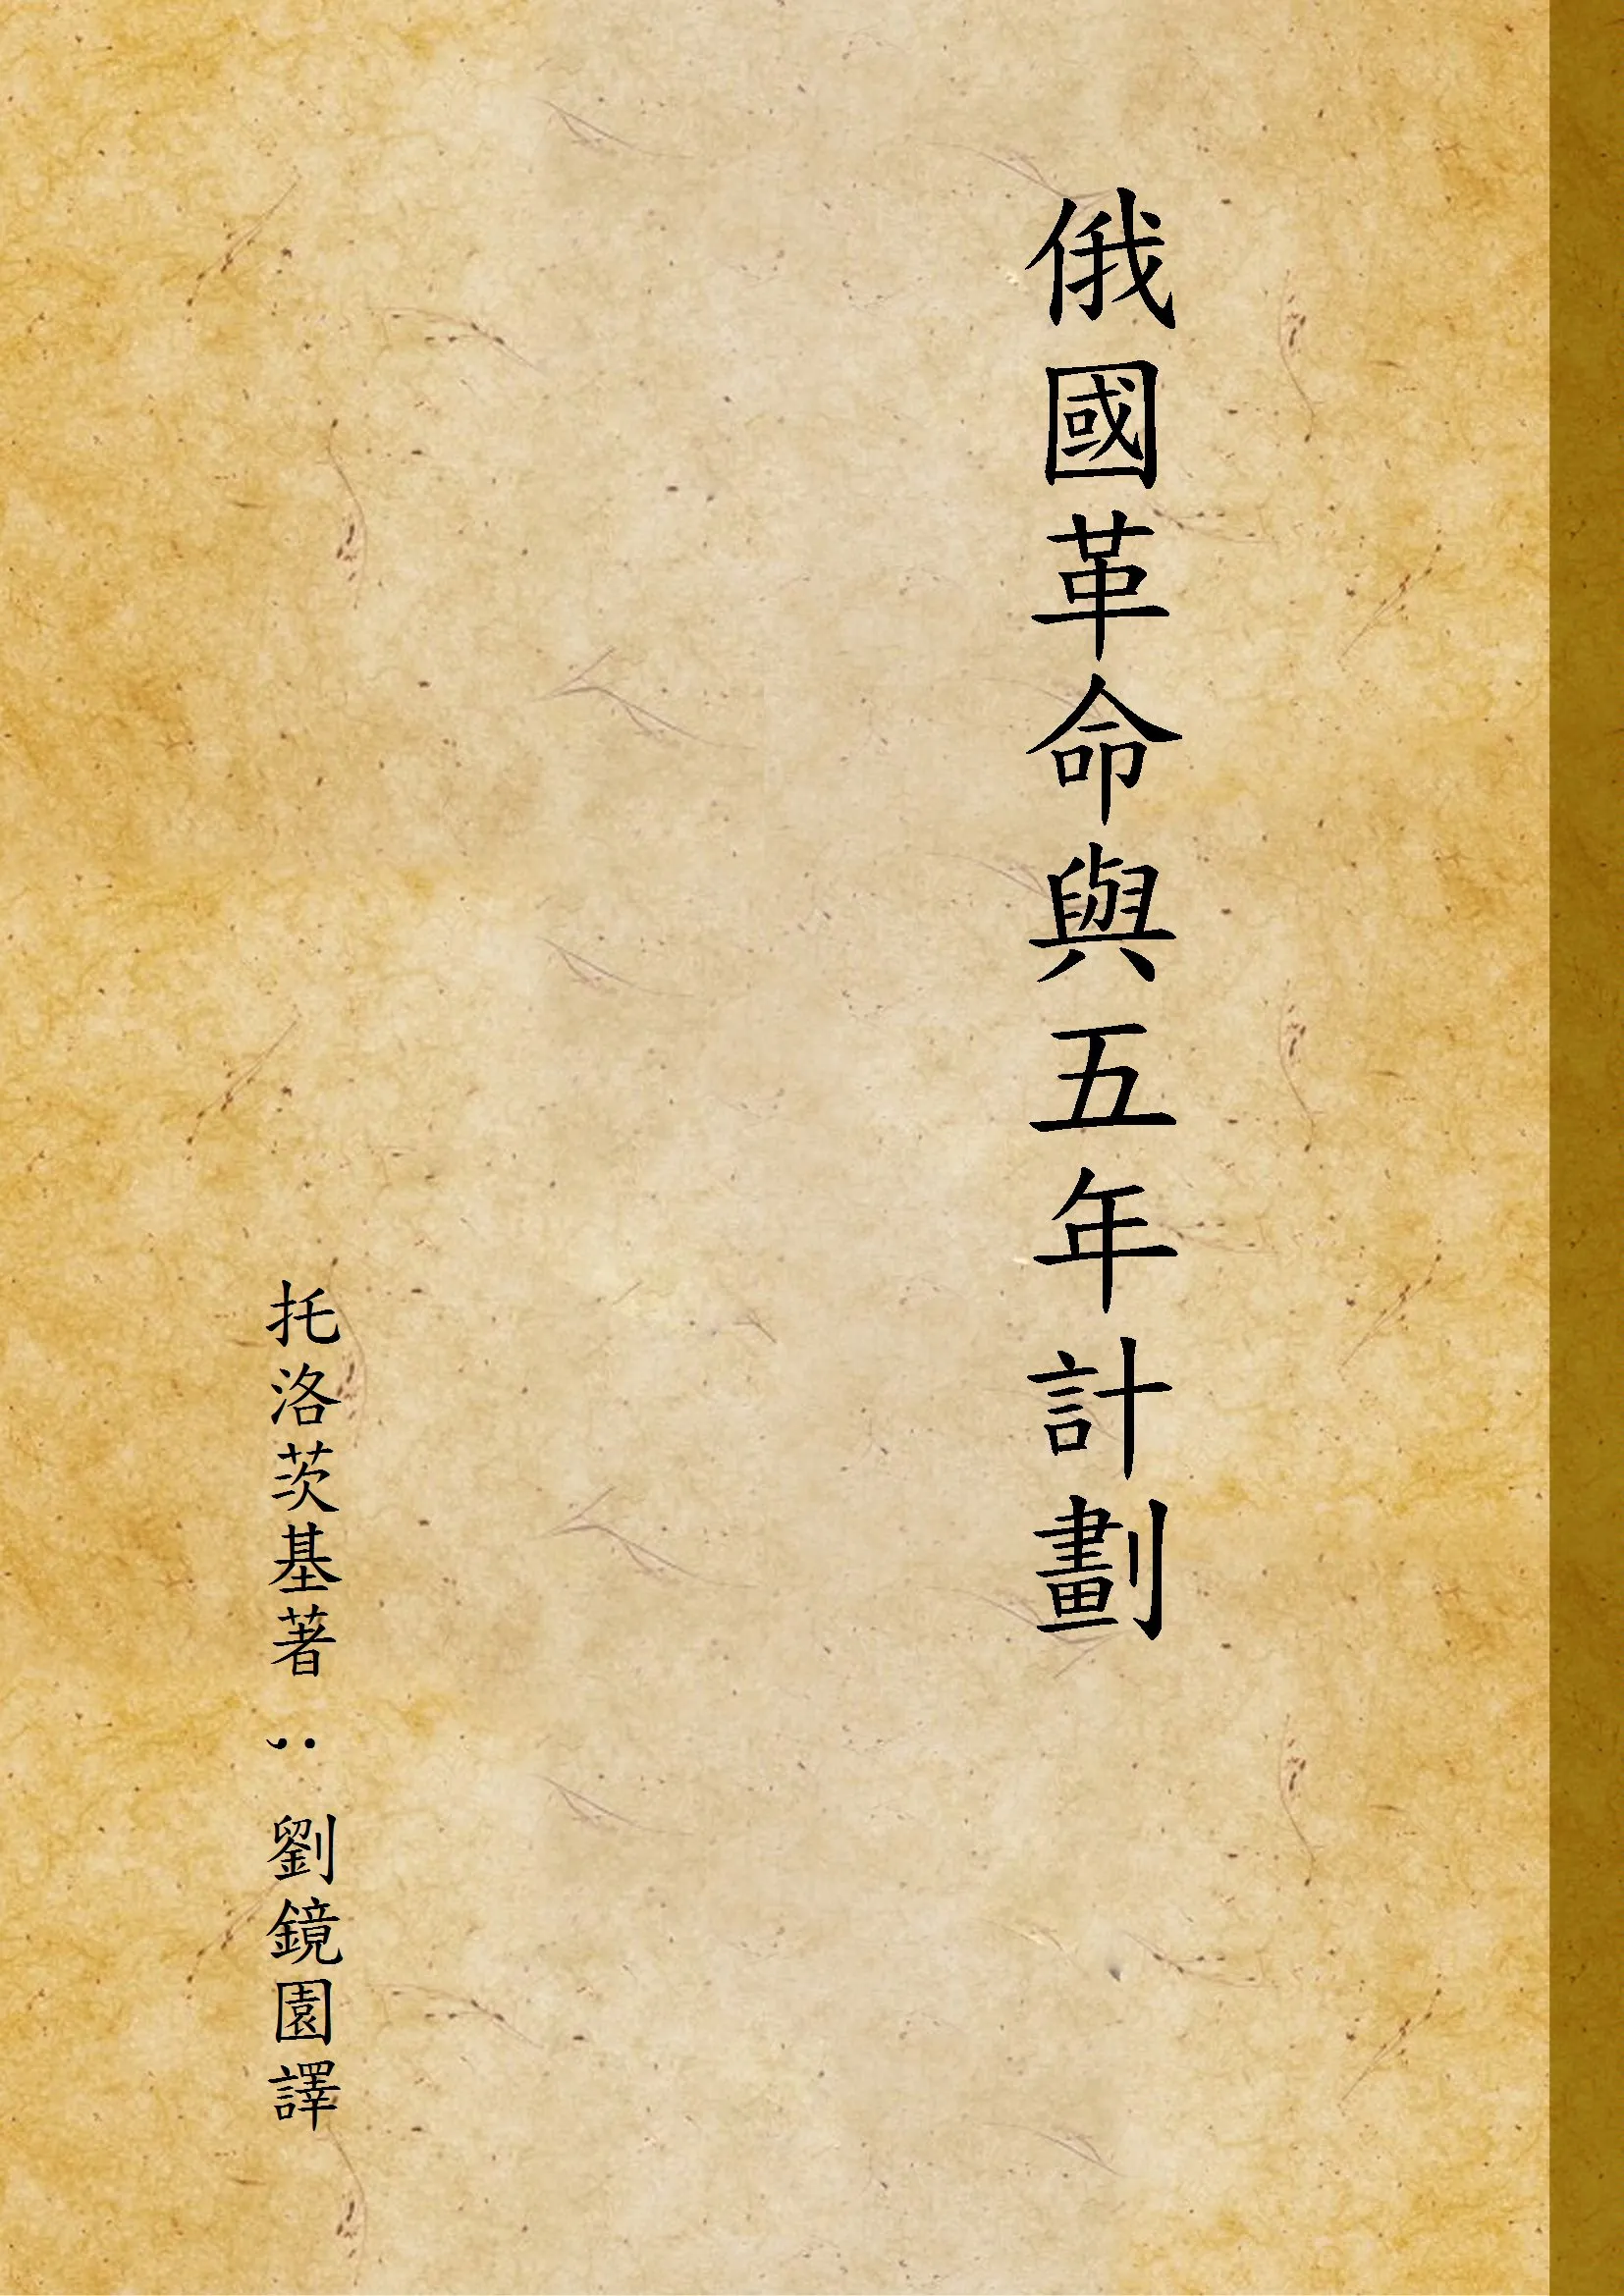 俄國革命與五年計劃
托洛茨基著;劉鏡園譯